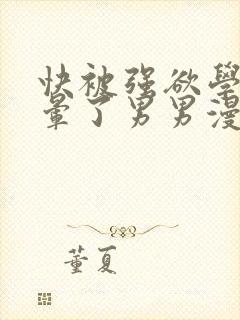 快被强欲學
暈了男男漫
董夏